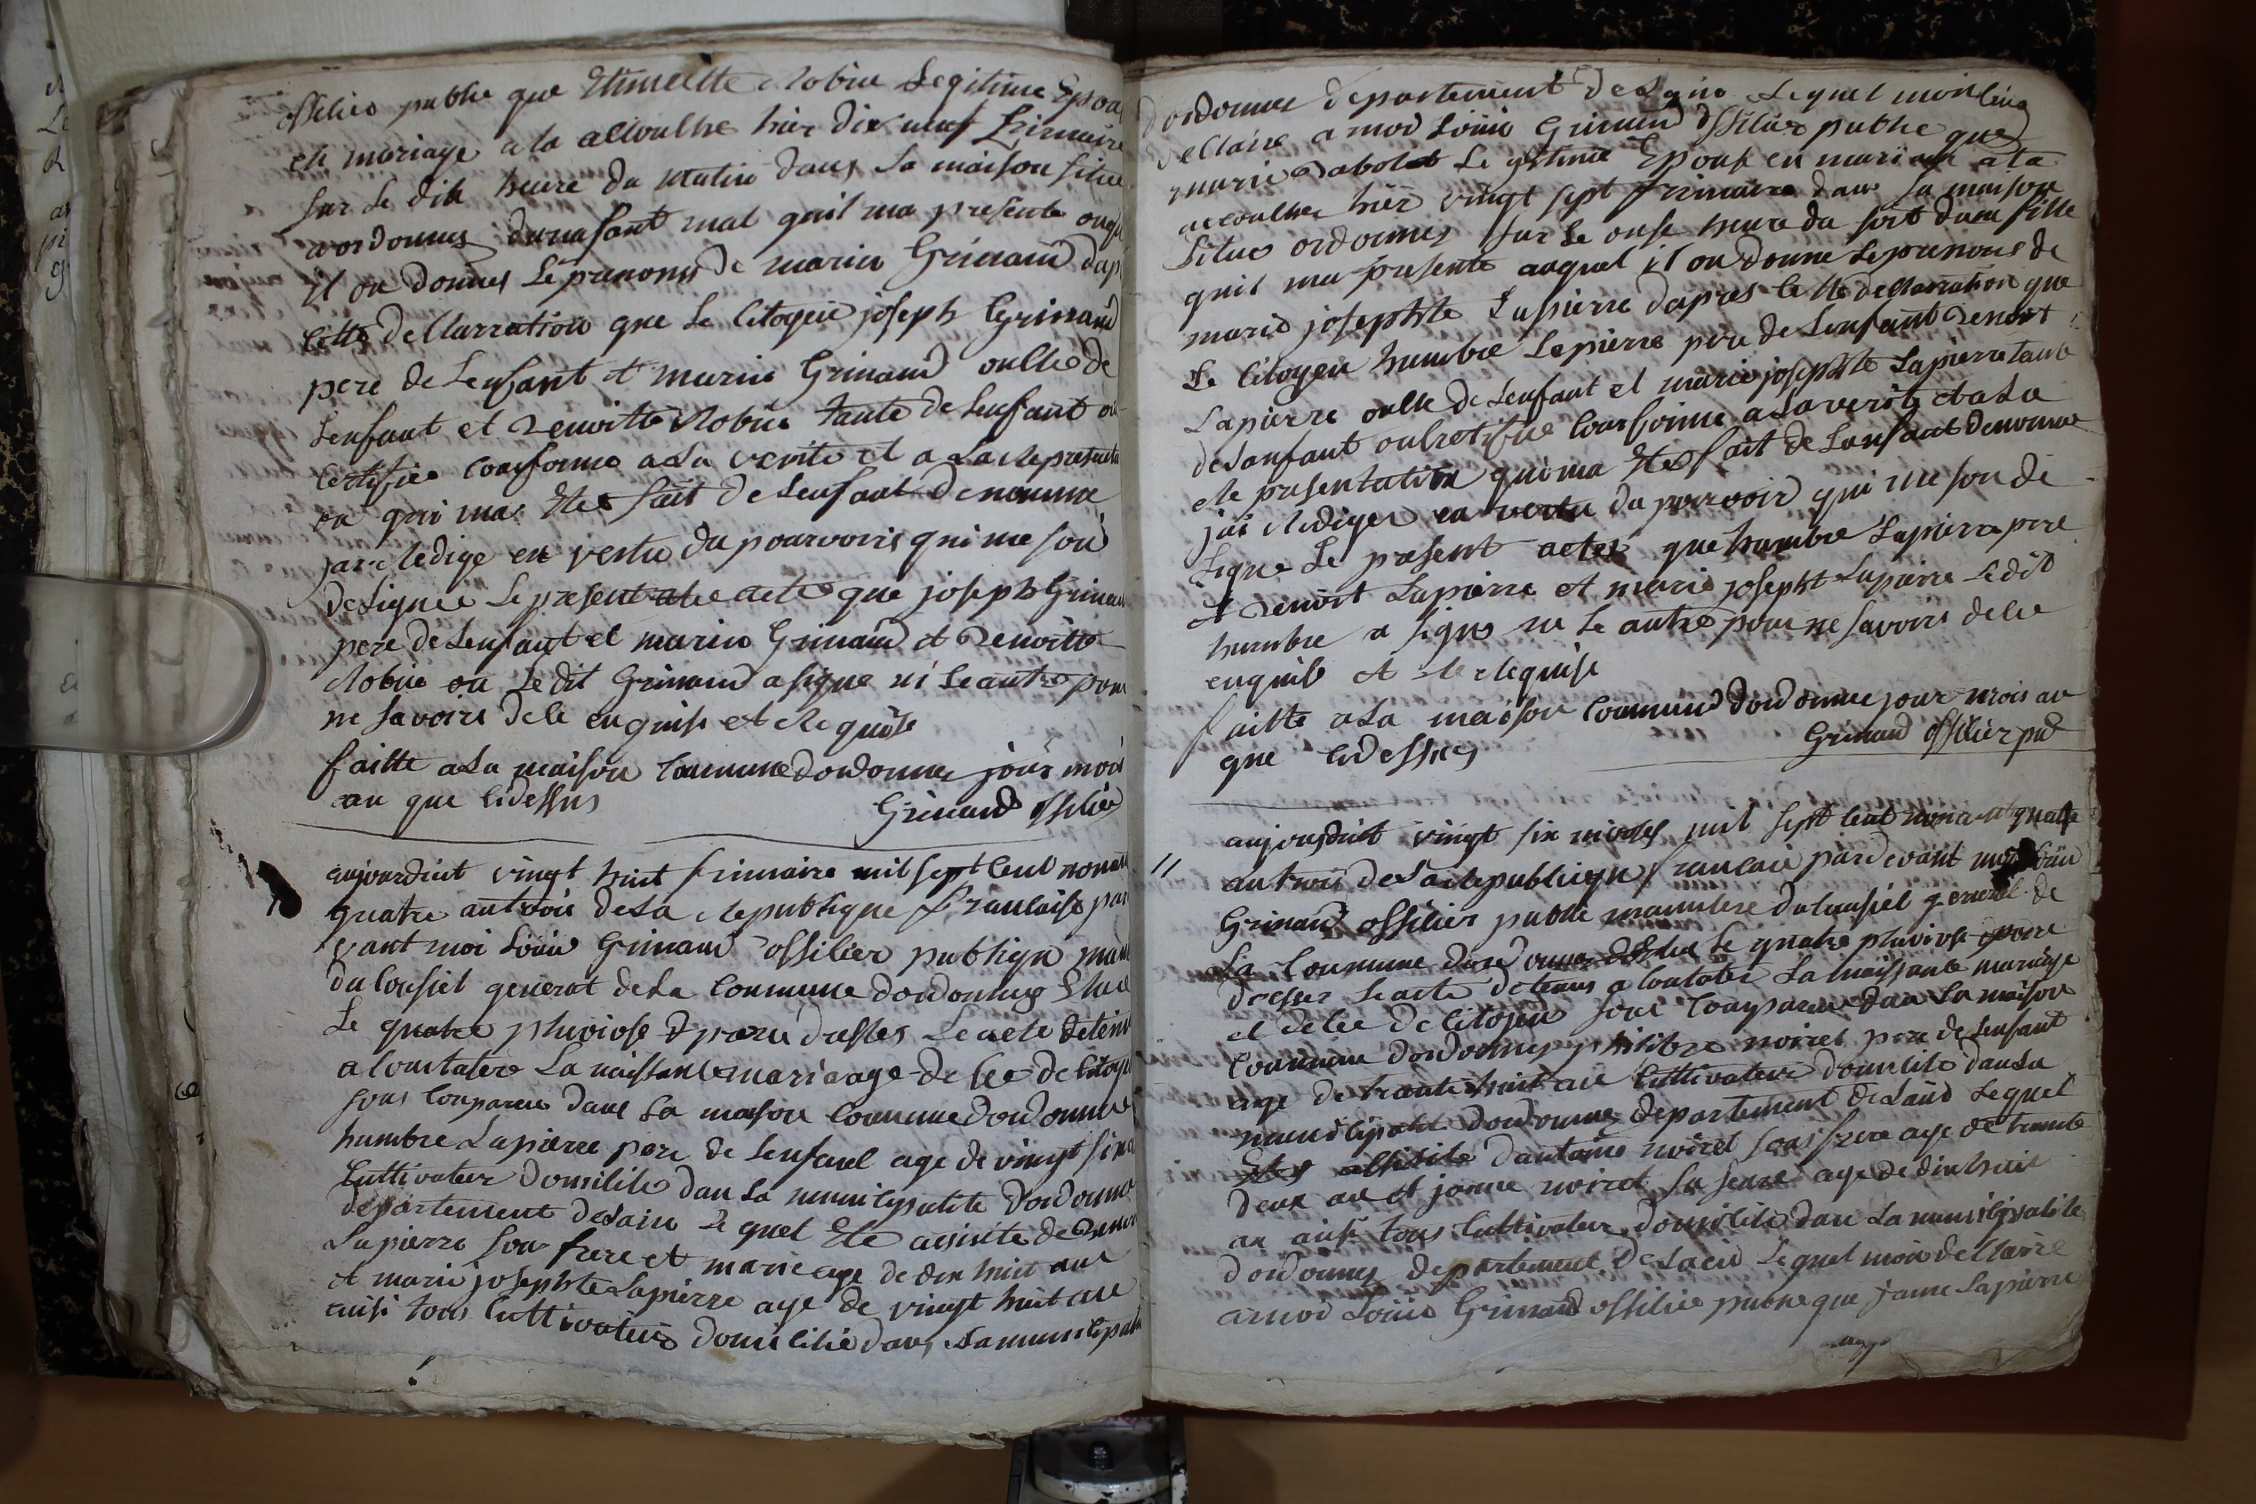 offilier publie que Etimeitte Robin Legitime Epou
en mariage a la accoulhé hier dix neuf frimaire
sur Le dik heure du Matin dans Sa maison situe
a ordonnes dunafant mal quil ma presente auqu
il on donnes Le prenoms de marin Grinand dap
Cette dellarration que Le Citoyen joseph Grinand
pere de Lenfant et marin Grinand oulhe de
Lenfant et Benoitte Robin tante de Lenfant on
Certifie Conforme a La verite et a La Represantati
on qui mas Etes fait de Lenfant denomme
jai Redige en vertu du pourvoirs qui me sou
deSignee Le present acte que joseph Grinand
pere de Lenfant et marin Grinand et Benoitte
Robin on Le dit Grinand a signe ni Le autre pour
ne savoirs de Ce enquise et Requise
faitte a La maison Commune dordonnes jour mois
an que Cidessus
Grinand offilier
aujourduit vingt huit frimaire mil sept Cent nonante
quatre an trois deLa Republique francaise par
vant moi Louis Grinand offilier publique mam
du Consiel general deLa Commune dordonnes Elue
Le quatre pluviose pour dresses Le acte detem
a Contatere La naissance mariage de Ce de Citoye
sous Comparus dans La maison Commune dordonnes
humbre Lapierre pere de Lenfant age de vingt six a
Cultivateur domilile dan La munilipalite dordonnes
departement deLain Le quel Ete acisite de Benoi
Lapierre son frere et marie age de dix huit ans
et marie josephte Lapierre age de vingt huit ans
ausi tous Cultivateurs domililie dans La munilipalit
dordonnes departement deLain Lequel mois
dellaire a moi Louis Grinand offilier publie que
marie Dabolet Legitime Epouse en mariage a La
accoulher hier vingt sept frimaire dans sa maison
situe ordonnes sur Le onse heure du soit dune fille
quil ma presente auquel il on donne Le prenoms de
marie josephte Lapierre dapres Cette dellarration que
Le Citoyen humbre Lapierre pere de Lenfant Benoit
Lapierre oulhe de Lenfant et marie josephte Lapierre tante
deLanfant Conforme a La verite et a La
Representation qui ma Etes fait de Lanfant denomme
jai Rediger en vertu du pourvoir qui me son de
signe Le present actes que humbre Lapierre pere
et Benoit Lapierre et marie josepht Lapierre Ledit
humbre a signe ni Le autre pour ne savoirs de Ce
enquise et Requise
faitte a La maison Commune dordonnes jour mois an
que Cidessus
Grinand offilier pub
aujourduit vingt six nivoses mil sept Cent nonante quatre
an trois deLa Republique francaise pardevant moi Louis
Grinand offilier publie mammbre du Consiel general de
La Commune dordonnes Elue Le quatre pluviose pour
dresser Le acte detenus a Contater La naissance mariage
et deCee de Citoyen sous Comparus dan La maison
Commune dordonnes philibre noiret pere de Lenfant
age de trante huit an Cultivateur domilile dans La
munilipalite dordonnes departement deLain Lequel
dantoine noiret sous frere age de trante
deux an et janne noiret sa seure age de dix huit
an ausi tous Cultivateur domilile dan La munilipalite
dordonnes departement deLain Lequel mois dellaire
a moi Louis Grinand offilie publie que jane Lapierre